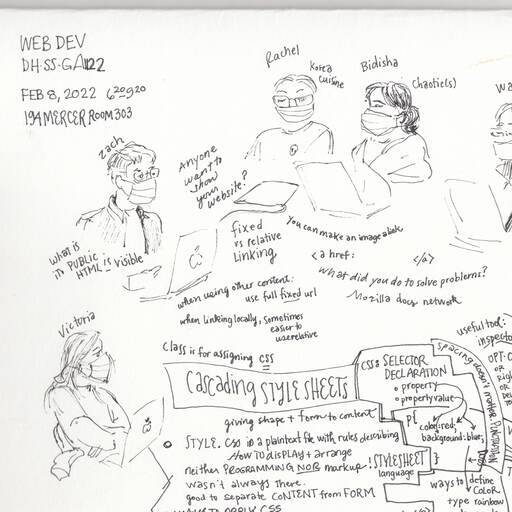 WEB DEV
DH-SS-GA122
FEB 8, 2022 6:20-9:20
194 MERCER ROOM 303
Rachel
Korea
Cuisine
Bidisha
Chaotic(s)
Zach
Anyone
want to
show
your
website?
what is
in PUBLIC
HTML is visible
fixed
vs relative
Linking
You can make an image a link
<a href:
</a>
what did you do to solve problems?
Mozilla docs network
when using other content:
use full fixed url
when linking locally, sometimes
easier to
use relative
Victoria
Class is for assigning css
Cascading STYLE SHEETS
giving shape + form to content
STYLE.css is a plaintext file with rules describing
HOW TO display + arrange
neither PROGRAMMING NOR markup! STYLESHEET
language
wasn't always there.
good to separate CONTENT from FORM
WAYS TO APPLY CSS
CSS: SELECTOR
DECLARATION
property
property value
p{
color: red;
background: blue;
}
spacing doesn't matter PUNCTUATION
does
useful tool:
inspector
OPT-C
OR
Right
OR
ways to define
COLOR
type rainbow